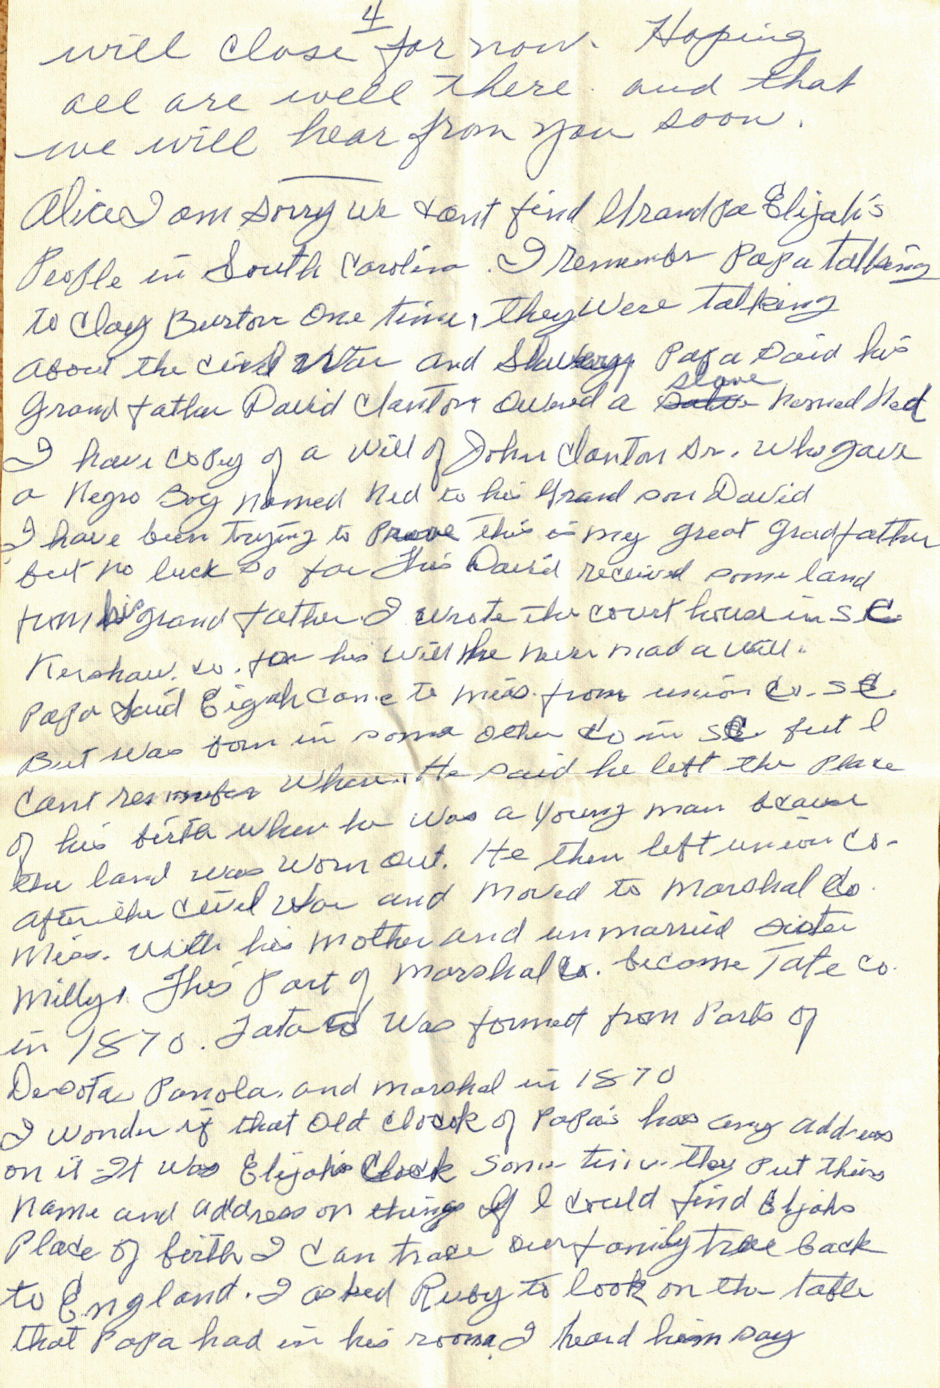 4
will close for now. Hoping
all are well there. and that
we will hear from you soon.
Alice I am sorry we cant find Grandpa Elijah's
People in South Carolina. I remember Papa talking
to Clay Burton One time, they were talking
about the civil War and Slavery, Papa Said his
Grand father David Clanton, owned a slave Named Ned
I have copy of a will of John Clanton Sr. Who gave
a Negro Boy named Ned to his Grand son David
I have been trying to Prove this is my great Gradfather
but no luck so far This David received some land
from his grand father. I wrote the court house in S C
Kershaw. co. for his will he never mad a will.
Papa Said Eigah came to miss. from union Co. S C.
But was born in some other Co in S C but I
Cant remember where. He said he left the place
of his birth when he was a young man because
the land was worn out. He then left union Co.
after the civil War and moved to Marshal Co.
Miss. with his mother and unmarried sister
Milly. This Part of Marshal Co. become Tate co.
in 1870. Tate Co was formed from Parts of
Desota Panola. and marshal in 1870
I wonder if that old clock of Papa's has any address
on it. It was Elijahs Clock some time they put thire
name and address on things If I could find Elijahs
Place of birth I can trace our family tree back
to England. I asked Ruby to look on the table
that Papa had in his room, I heard him say